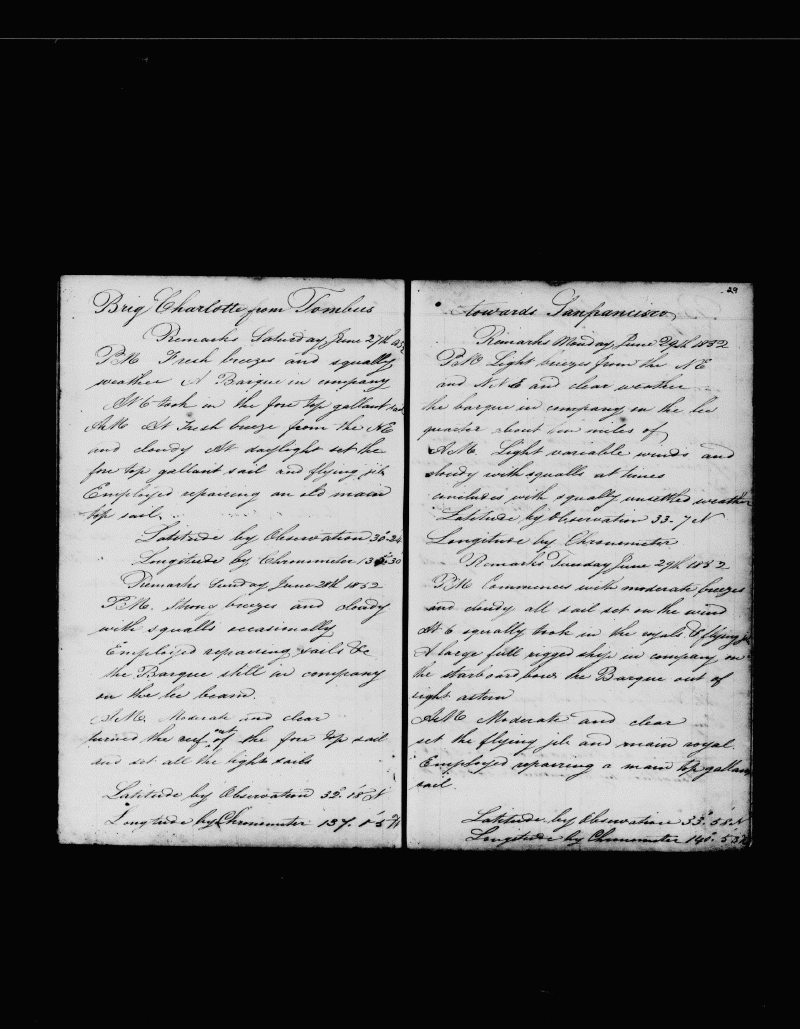 Brig Charlotte from Tombus
Remarks Saturday June 27th 1852
P.M. Fresh breezes and squally
weather A Barque in company
At 6 took in the fore top gallant sail
A.M. Fresh breeze from the NE
and cloudy At daylight set the
fore top gallant sail and flying jib
Employed repairing an old main
top sail.
Latitude by Observation 30.24
Longitude by Chronometer
Remarks Sunday June 28th 1852
P.M. Strong breezes and cloudy
with squalls occasionally
Employed repairing sails &c
the Barque still in company
on the lee beam.
A.M. Moderate and clear
turned the reef out of the fore top sail
and set all the light sails
Latitude by Observation 32°.18' N
Longtude by Chronometer 137.
29
towards Sanfrancisco
Remarks Monday June 29th 1852
P.M Light breezes from the NE
and N.N.E and clear weather
the barque in company on the lee
quarter about miles of
A.M. Light variable winds and
cloudy with squalls at times
concludes with squally unsettled weather
Latitude by Observation 33-7 N
Longitude by Chronometer
Remarks Tuesday June 29th 1852
P.M Commences with moderate breezes
and cloudy all sail set on the wind
At 6 squally took in the royals & flying jib
A large full rigged ship in company on
the starboard bow the Barque out of
sight astern
A.M. Moderate and clear
set the flying jib and main royal.
Employed repairing a main top gallant
sail.
Latitude by Observation 33°.58' N
Longitude by Chronometer 140°. 53